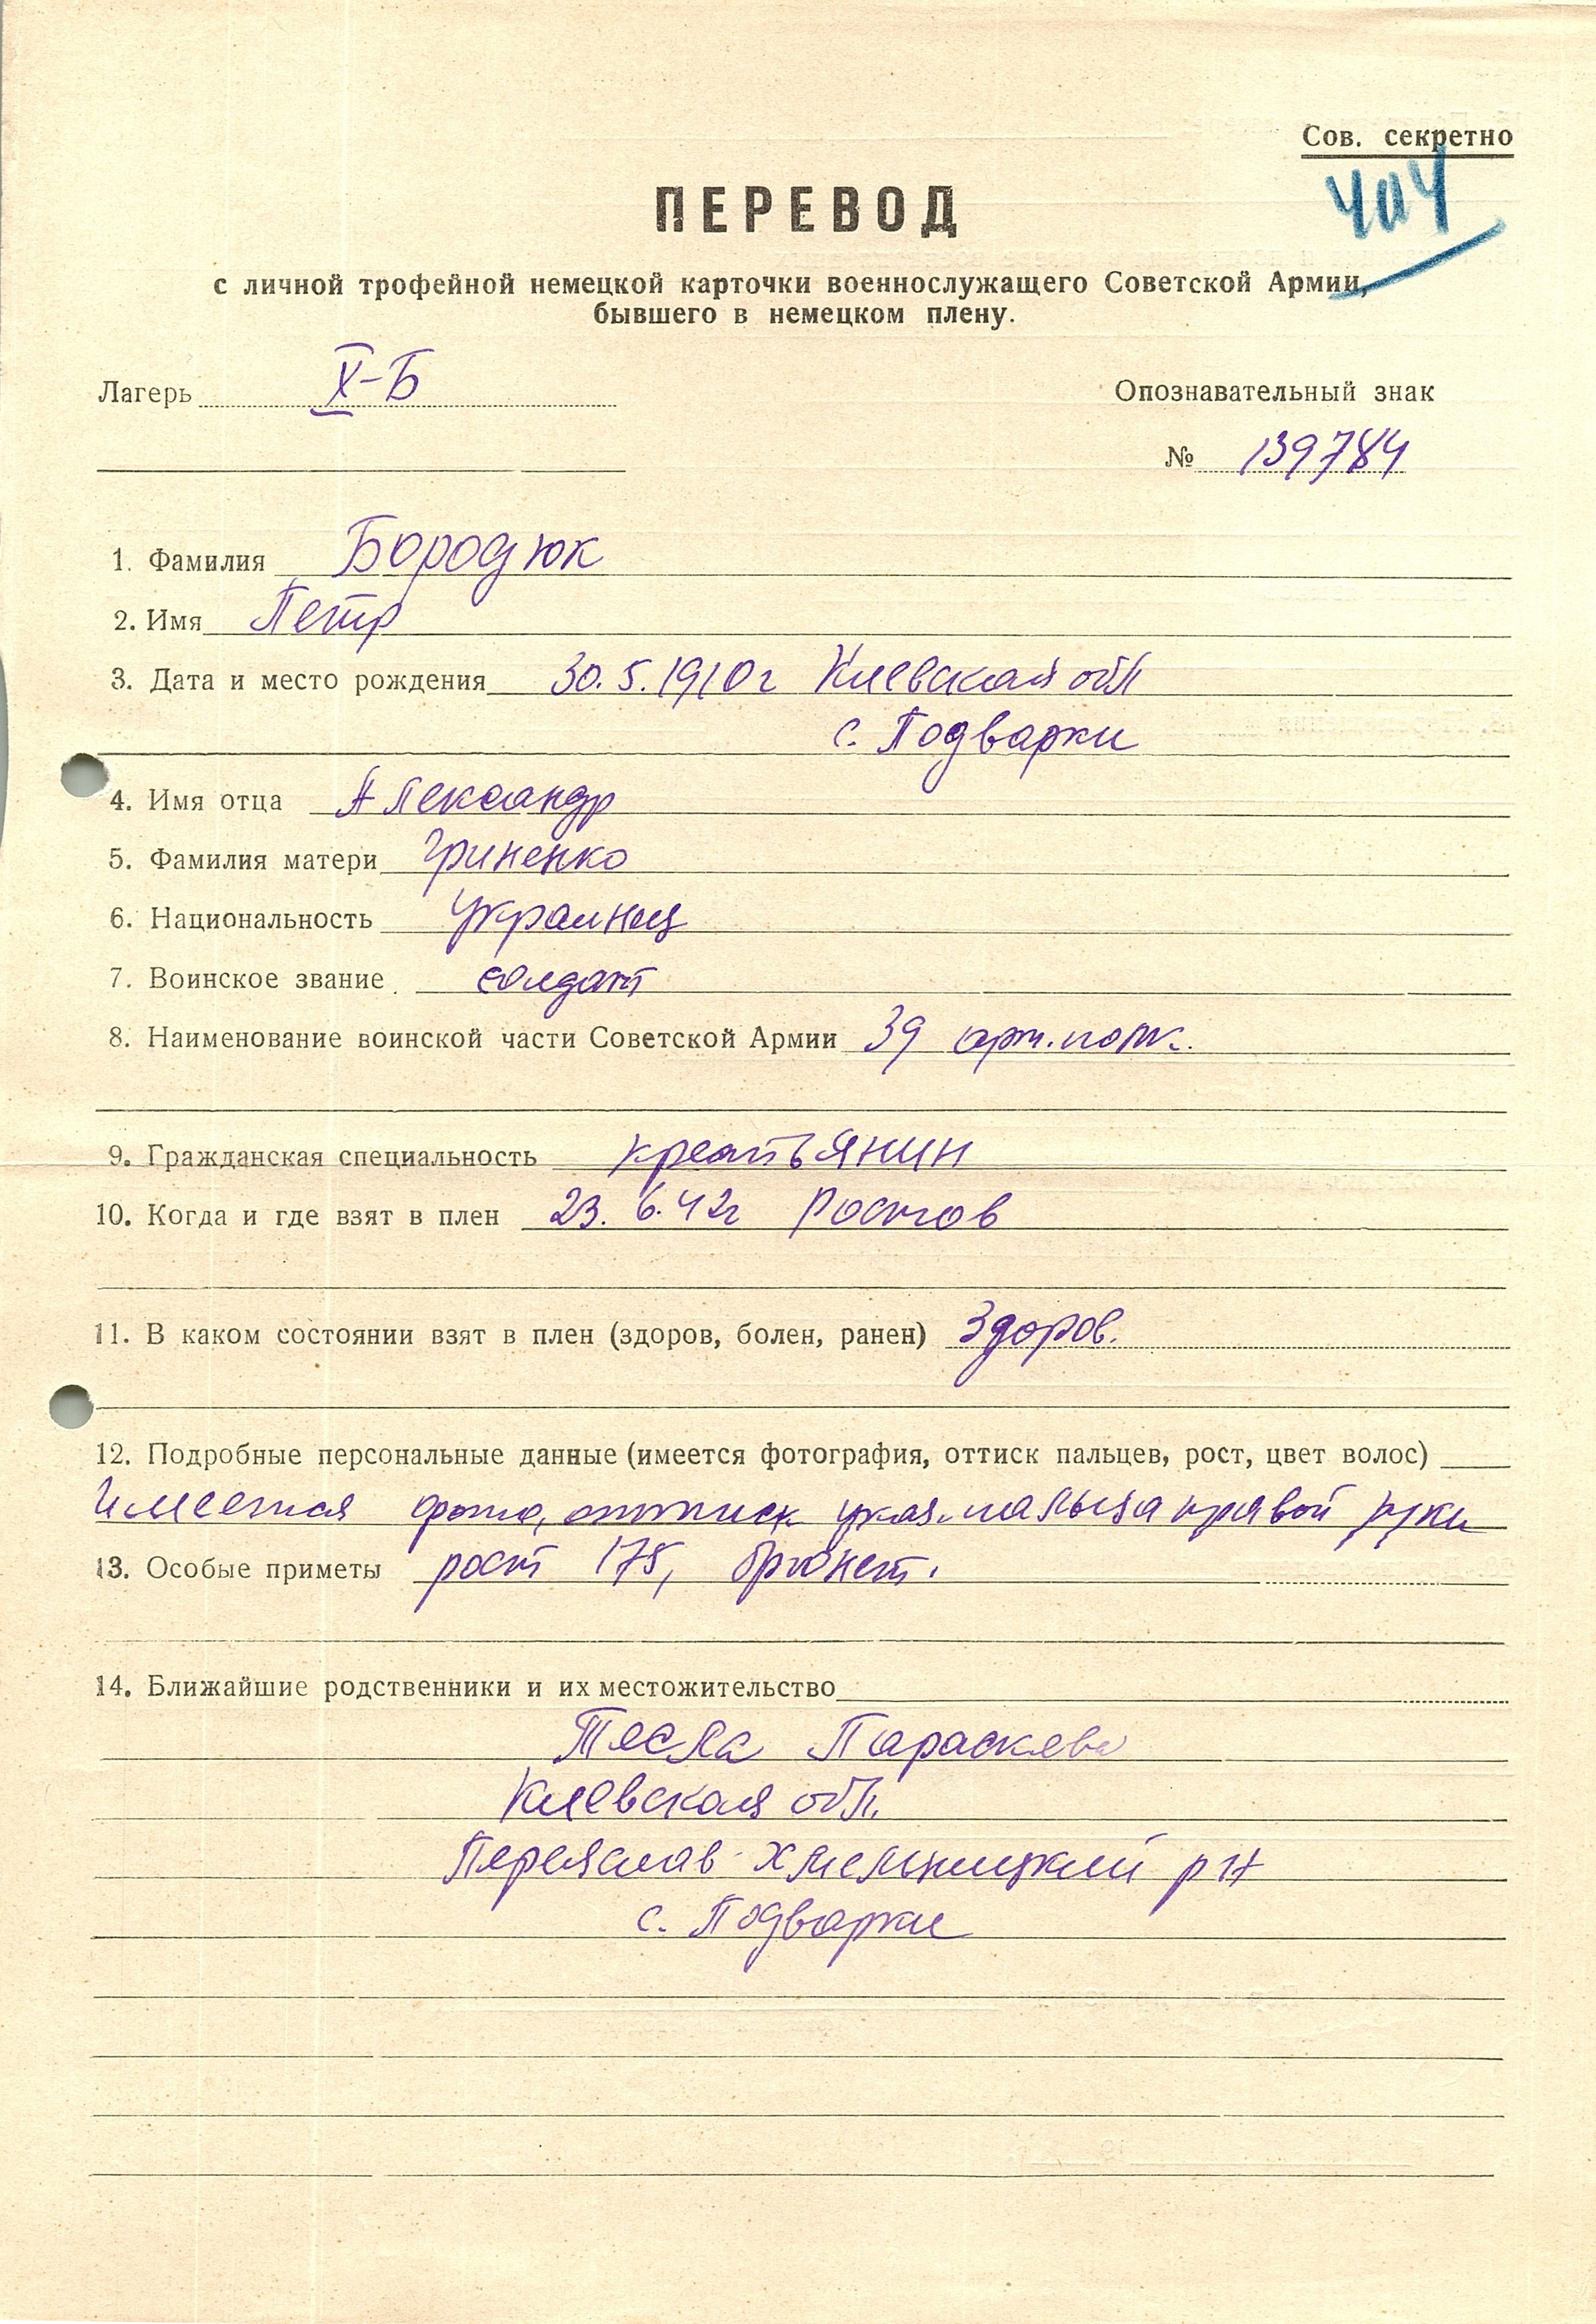 Сов. секретно
ПЕРЕВОД
с личной трофейной немецкой карточки военнослужащего Советской Армии,
бывшего в немецком плену.
Лагерь X-Б
Опознавательный знак
№ 139784
1. Фамилия Бородюк
2. Имя Петр
3. Дата и место рождения 30.5.1910г Киевская обл
с. Подварки
4. Имя отца Александр
5. Фамилия матери Гриненко
6. Национальность украинец
7. Воинское звание солдат
8. Наименование воинской части Советской Армии 39 арт. полк.
9. Гражданская специальность крестьянин
10. Когда и где взят в плен 23.6.42г Ростов
11. В каком состоянии взят в плен (здоров, болен, ранен) Здоров.
12. Подробные персональные данные (имеется фотография, оттиск пальцев, рост, цвет волос)
Имеется фото, оттиск указ. пальца правой руки
13. Особые приметы рост 175, брюнет.
14. Ближайшие родственники и их местожительство
Тесла Параскева
Киевская обл.
Переяслав-Хмельницкий р-н
с. Подварки